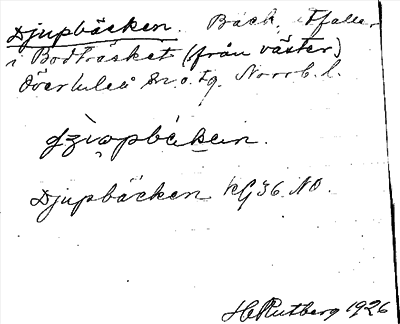 Djupbäcken. Bäck, utfaller
i Bodträsket (från väster)
Överluleå sn o. tg. Norrb. l.
Djupbäcken KG 36 NO.
H Rutberg 1926